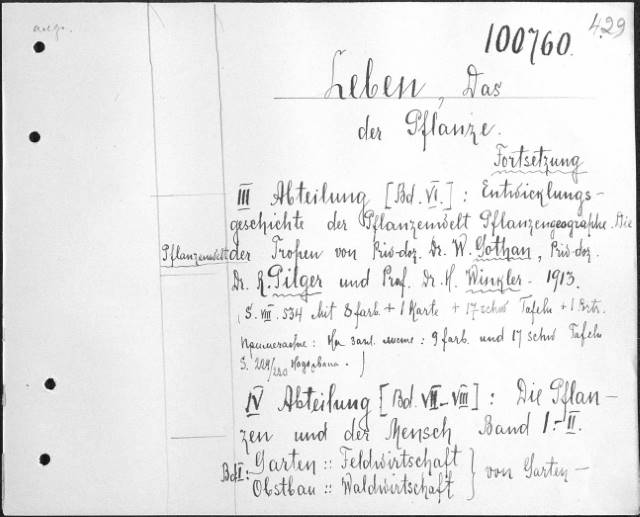 429
100760.
Leben, Das
der Pflanze.
Fortsetzung
III Abteilung [Bd. VI.] : Entwicklungs-
geschichte der Pflanzenwelt Pflanzengeographie. Die
Pflanzenwelt der Tropen von Priv-doz. Dr. W. Gothan, Priv-doz.
Dr. R. Pilger und Prof. Dr. H. Winkler - 1913.
(S. VIII. 534 Mit 8 farb. + 1 Karte + 17 schw Tafeln + 1 Portr.
Примечание: На загл. листе: 9 farb. und 17 schw Tafeln
S. 229/230)
IV Abteilung [Bd. VII-VIII] : Die Pflan-
zen und der Mensch Band I.-II.
Bd I: Garten :: Feldwirtschaft
Obstbau :: Waldwirtschaft } von Garten-